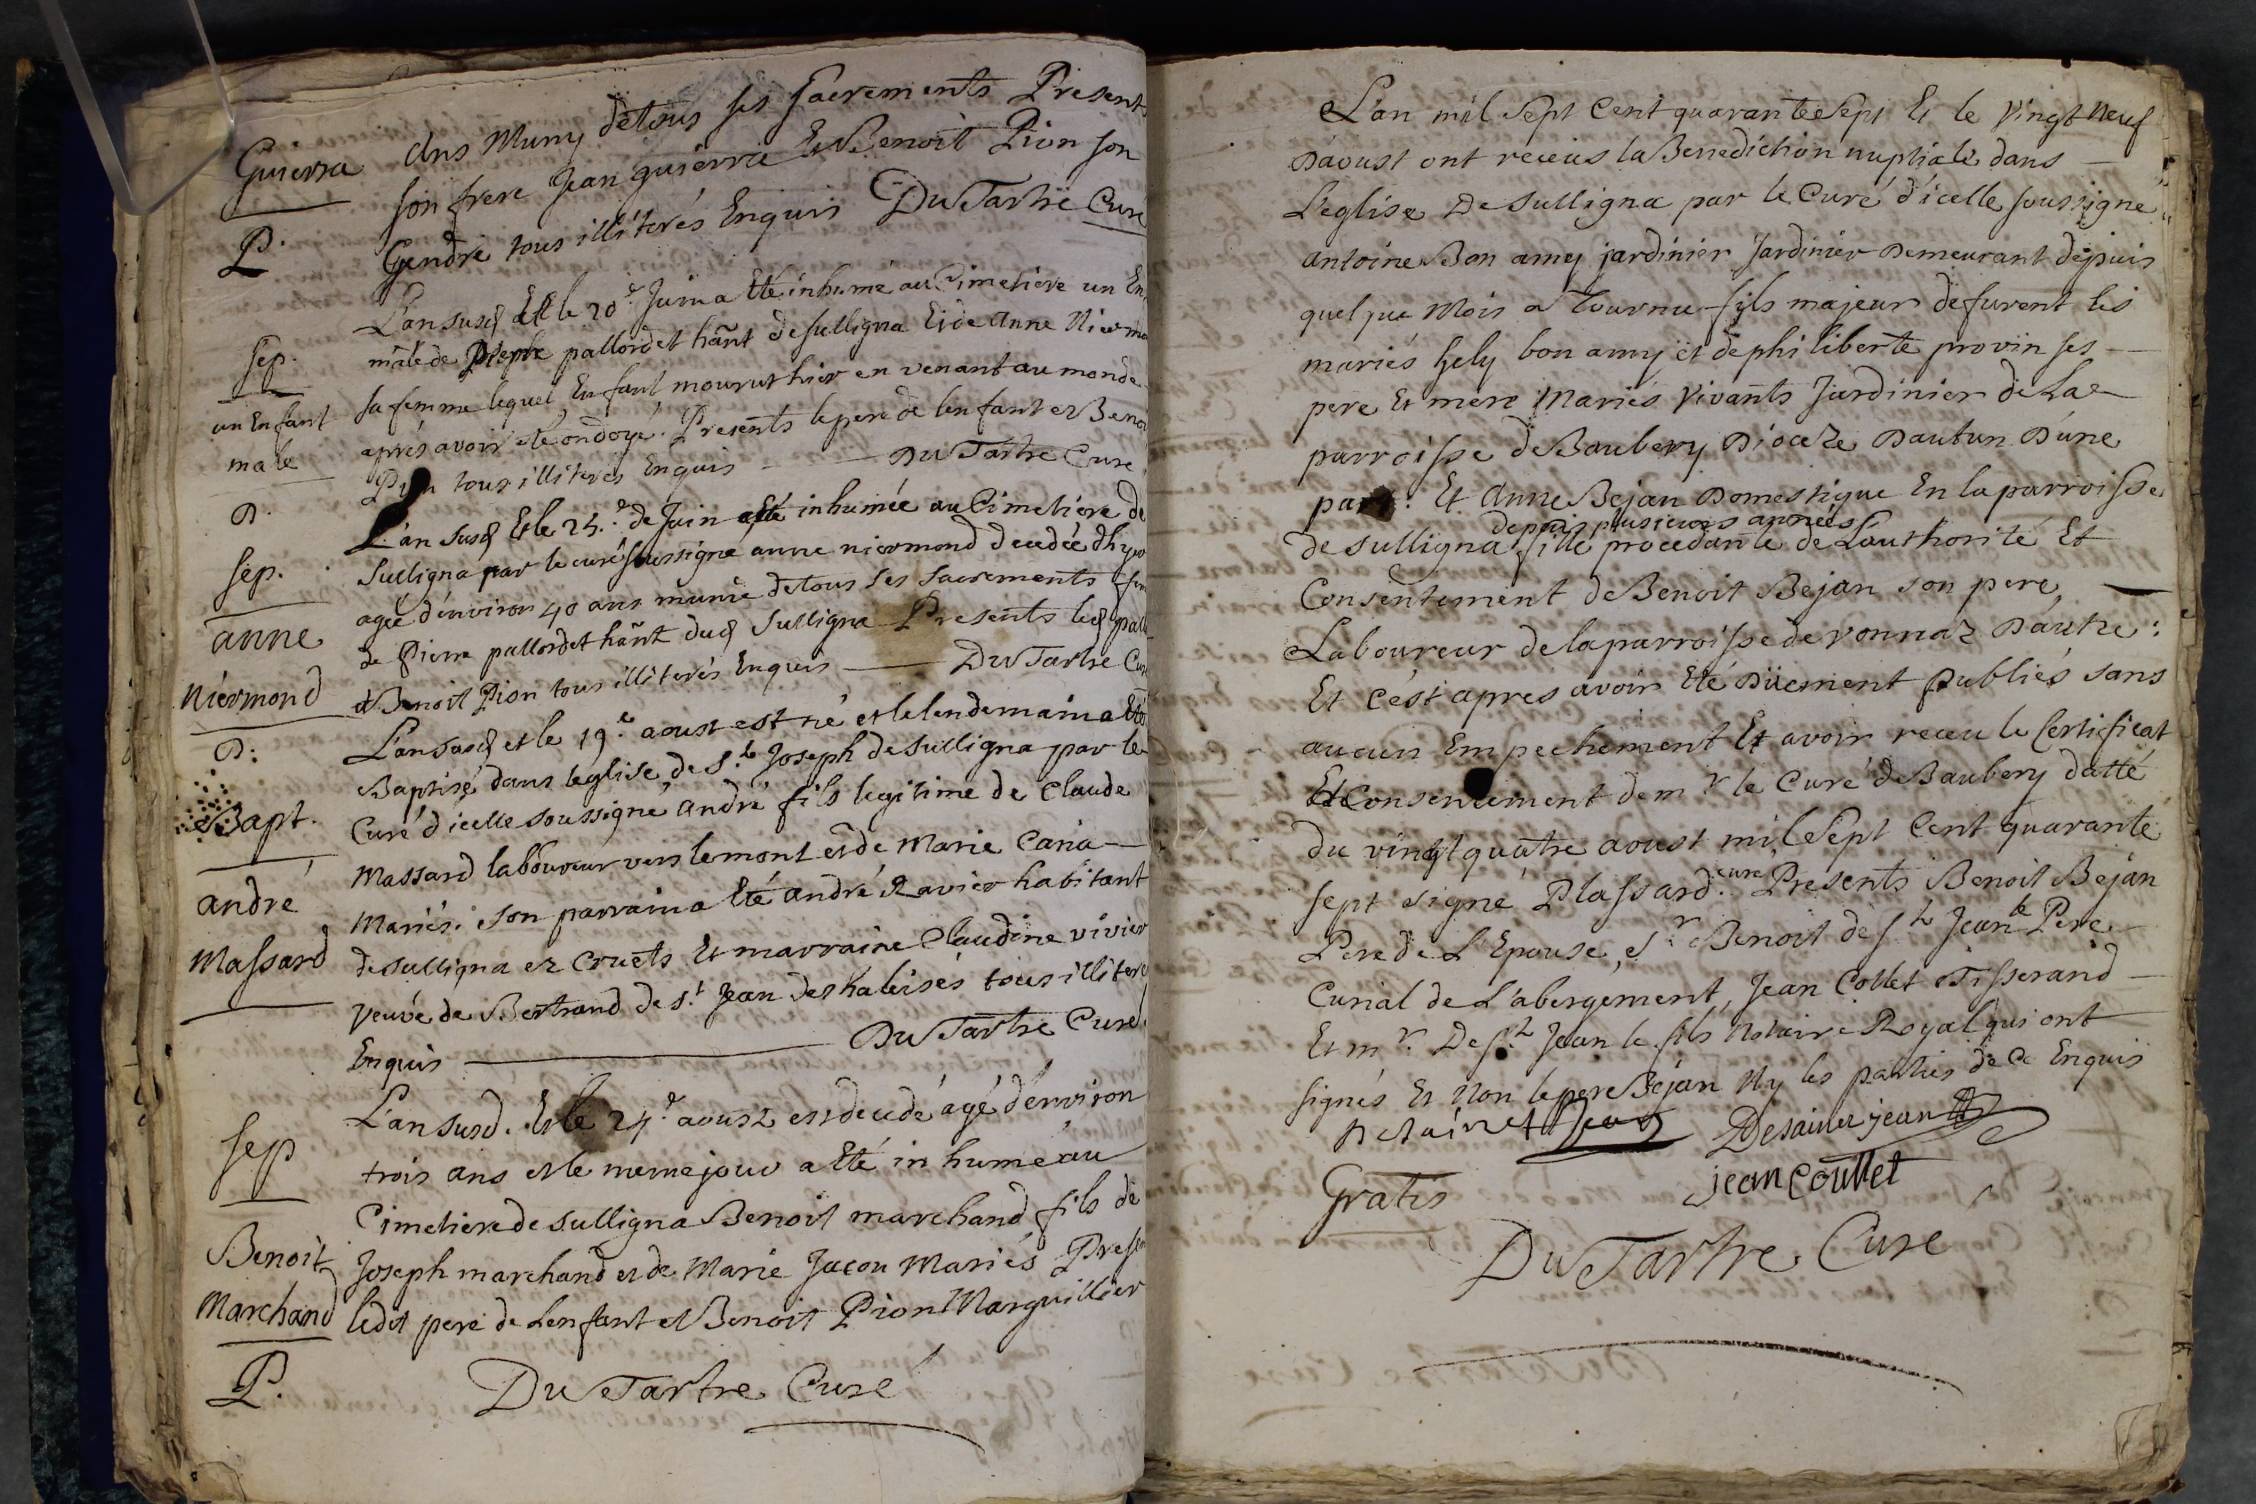 Guierra
P.
ans Muny detous ses sacrements Present
son frere Jean guierra Et Benoit Pion son
Gendre tous illiterés Enquis DuTartre Curé
sep.
un Enfant
male
D.
L'an susd Et le 20e Juin a Eté inhumé au Cimetiere un En
mâle de Pierre pallordet hãnt de sulligna Et de anne Niermo
sa femme lequel Enfant mourut hier en venant au monde
aprés avoir eté ondoyé. Presents le pere de lenfant et Benoi
Pion tous illiterés Enquis DuTartre Curé
sep.
anne
Niérmond
D:
L'an susd Et le 25.e de Juin a Eté inhumée au Cimetiere de
Sulligna par le curé soussigné anne niermond decedée dhydr
ageé d'environ 40 ans munie detous ses sacrements fem
de Pierre pallordet hãnt dud Sulligna Presents led pall
et Benoit Pion tous illiterés Enquis DuTartre Cur
Bapt.
andré
Massard
L'an susd et le 19.e aoust est né et le lendemain a Eté
Baptisé dans léglise de s.t Joseph de Sulligna par le
Curé d'icelle soussigné andré fils legitime de Claude
Massard laboureur vers lemont et de Marie Caria
Mariés. son parrain a Eté andré Ravier habitant
de sulligna es Cruets Et marraine Claudine vivier
veuve de Bertrand de s.t Jean des halises tous illiteré
Enquis DuTartre Curé
sep
Benoit
Marchand
P.
L'an susd. Et le 24.e aoust est decedé âgé d'environ
trois ans et le meme jour a Eté inhumé au
Cimetiere de sulligna Benoit marchand fils de
Joseph marchand et de Marie Jacon Mariés Presen
ledit pere de Lenfant et Benoit Pion Marguillier
DuTartre Curé
L'an mil sept Cent quarante sept Et le vingt neuf
D'aoust ont receus la Benediction nuptiale dans
L'eglise De sulligna par le Curé d'icelle soussigné
antoine Bon amy jardinier Jardinier Demeurant depuis
quelque Mois a Tournu fils majeur de furent les
mariés hely bon amy et de philiberte provin ses
pere Et mere Mariés vivants Jardinier de La
parroisse de Baubery Dioceze Dautun D'une
part. Et Anne Bejan Domestique En la parroisse
depuis plusieurs annéés
de sulligna fille procedante de Lauthorité Et
Consentement de Benoit Bejan son pere
Laboureur de la parroisse de vonnaz D'autre:
Et c'est apres avoir Eté Düement Publiés sans
aucun Empechement Et avoir receu le Certificat
Et Consentement de m.r le Curé de Baubery datté
du vingt quatre aoust mil sept Cent quarante
sept signé Plassard curé. Presents Benoit Bejan
Pere de L'Epouse, s.r Benoit de s.t Jean le Pere
Curial de L'abergement, Jean Collet Tisserand
Et m.r De s.t Jean le fils Notaire Royal qui ont
signés Et Non le pere Bejan Ny les parties de ce Enquis
Desainct Jean Desainct jean
Gratis jean Coullet
DuTartre Curé